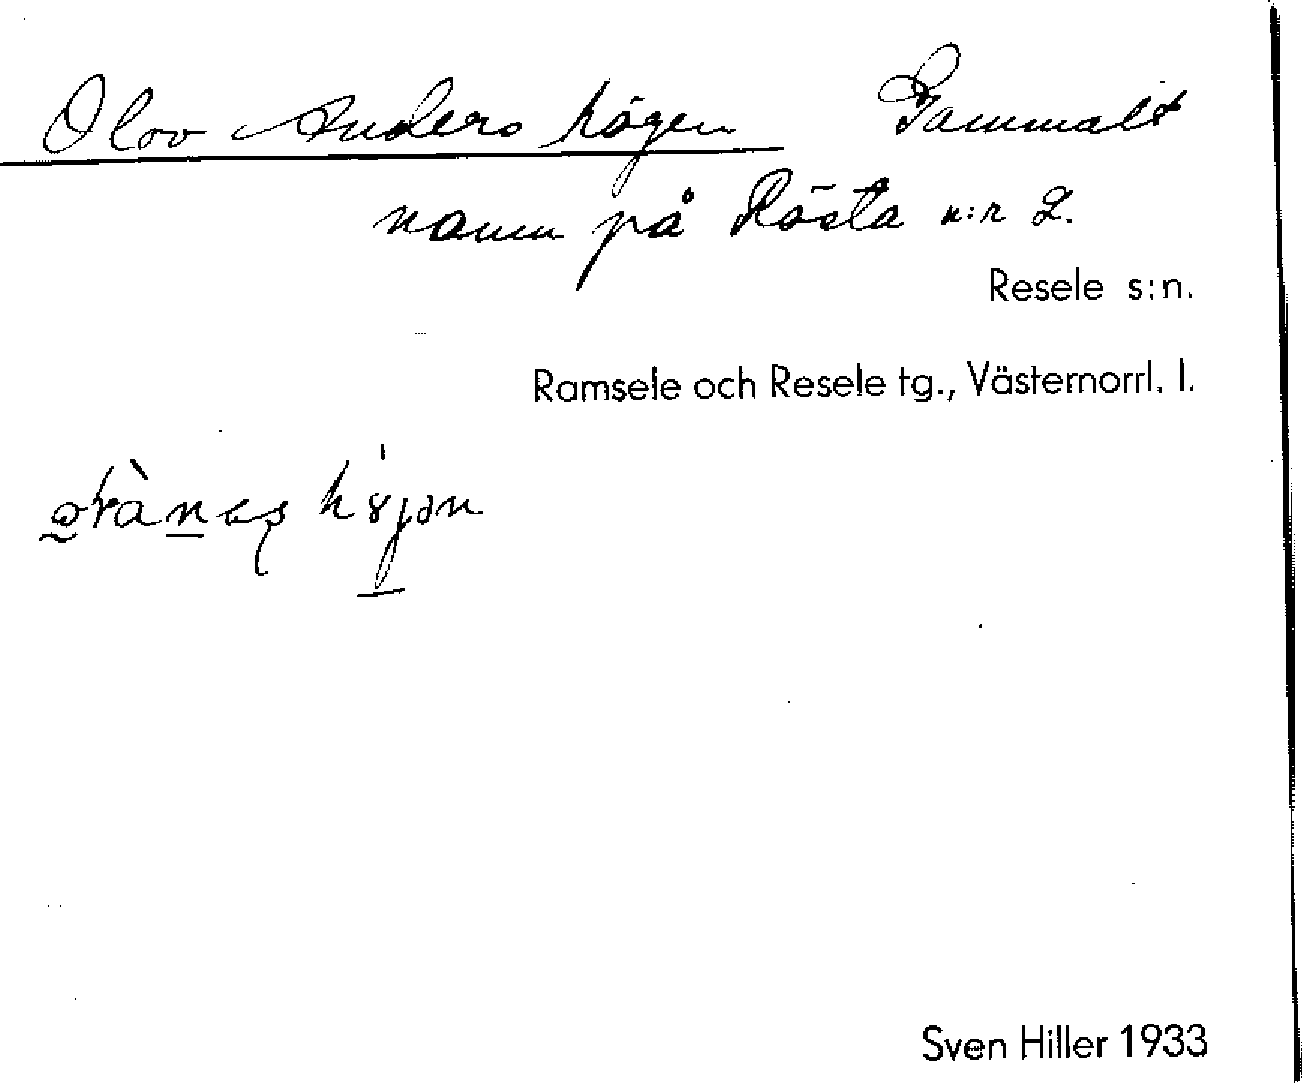 Olov Anders högen Gammalt
namn på Rösta n:r 2.
Resele s:n.
Ramsele och Resele tg., Västernorrl. l.
Sven Hiller 1933